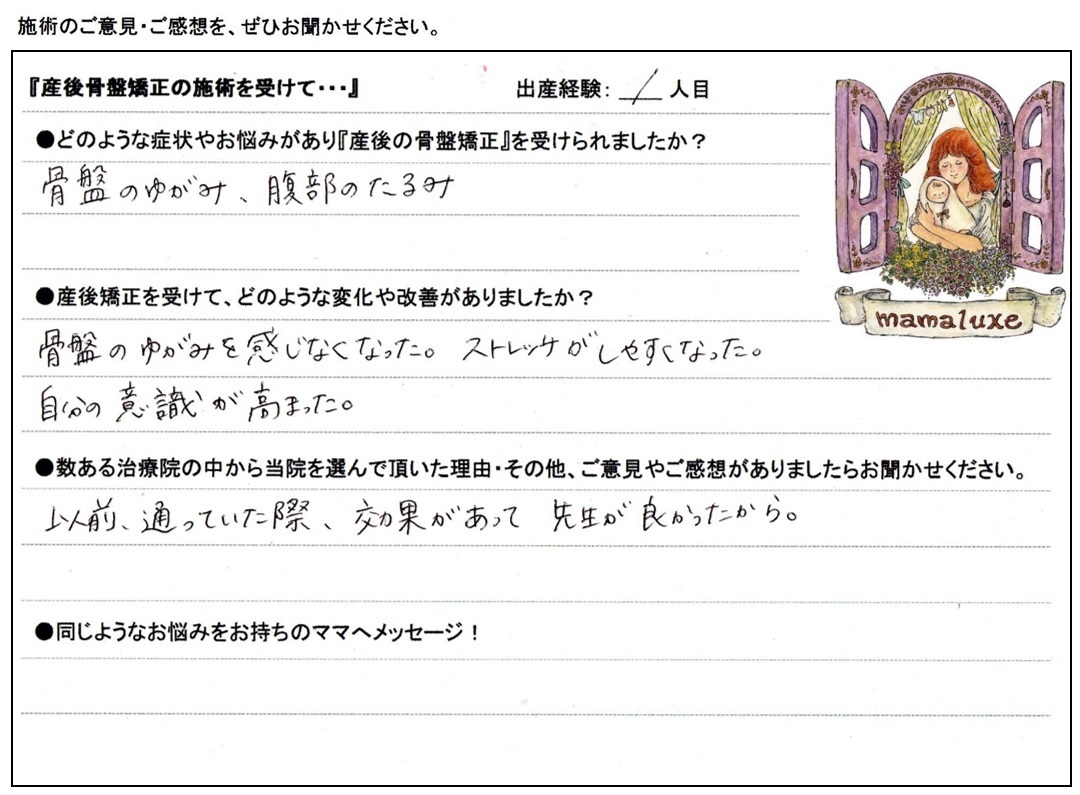 施術のご意見・ご感想を、ぜひお聞かせください。
『産後骨盤矯正の施術を受けて・・・』 出産経験: 1 人目
●どのような症状やお悩みがあり『産後の骨盤矯正』を受けられましたか？
骨盤のゆがみ、腹部のたるみ
●産後矯正を受けて、どのような変化や改善がありましたか？
骨盤のゆがみを感じなくなった。ストレッチがしやすくなった。
自分の意識が高まった。
●数ある治療院の中から当院を選んで頂いた理由・その他、ご意見やご感想がありましたらお聞かせください。
以前、通っていた際、効果があって 先生が良かったから。
●同じようなお悩みをお持ちのママへメッセージ！
mamaluxe